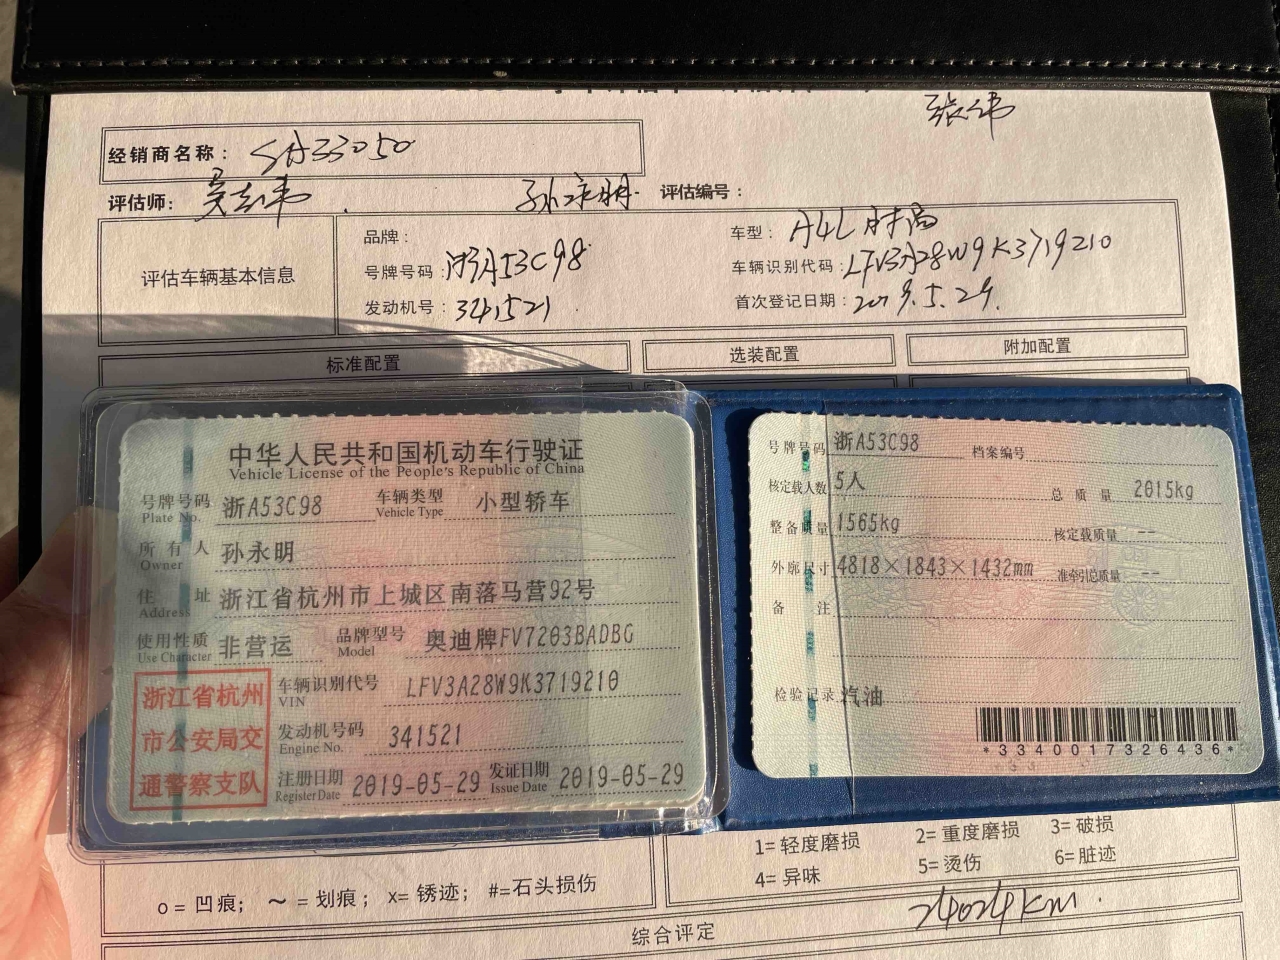 张纬
经销商名称： SA33050
评估师： 吴志伟 . 孙永明. 评估编号：
评估车辆基本信息
品牌： 车型： A4L 时尚
号牌号码： 浙A53C98 车辆识别代码： LFV3A28W9K3719210
发动机号： 341521 首次登记日期： 2019.5.29.
标准配置 选装配置 附加配置
中华人民共和国机动车行驶证
Vehicle License of the People's Republic of China
号牌号码 浙A53C98 车辆类型 小型轿车
Plate No. Vehicle Type
所有人 孙永明
Owner
住址 浙江省杭州市上城区南落马营92号
Address
使用性质 非营运 品牌型号 奥迪牌FV7203BADBG
Use Character Model
浙江省杭州市公安局交通警察支队
车辆识别代号 LFV3A28W9K3719210
VIN
发动机号码 341521
Engine No.
注册日期 2019-05-29 发证日期 2019-05-29
Register Date Issue Date
号牌号码 浙A53C98 档案编号
核定载人数 5人 总质量 2015kg
整备质量 1565kg 核定载质量 --
外廓尺寸 4818×1843×1432mm 准牵引总质量 --
备注
检验记录 汽油
*3340017326436*
1=轻度磨损 2=重度磨损 3=破损
4=异味 5=烫伤 6=脏迹
o=凹痕； ～=划痕； x=锈迹； #=石头损伤
24024KM.
综合评定